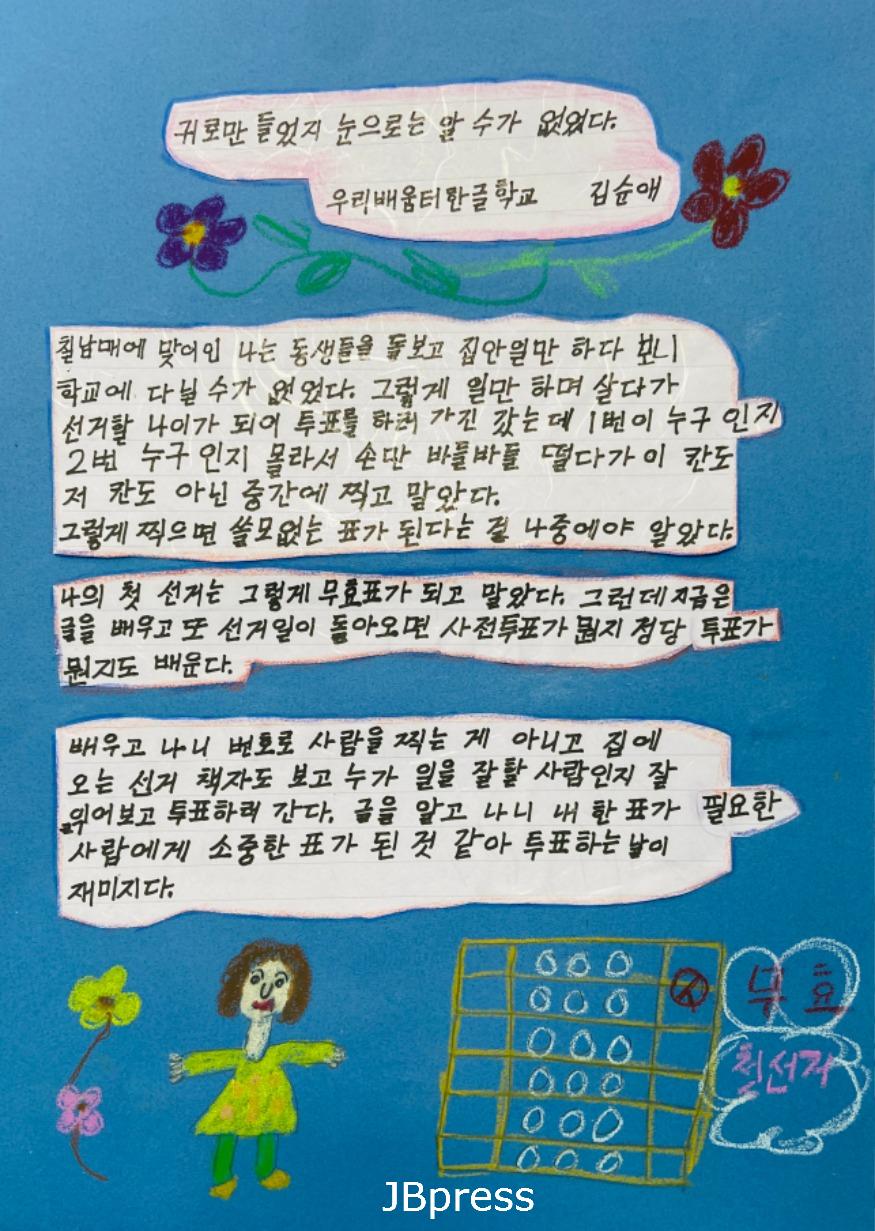 귀로만 들었지 눈으로는 알 수가 없었다.
우리배움터한글학교 김순애
칠남매에 맞이인 나는 동생들을 돌보고 집안일만 하다 보니
학교에 다닐 수가 없었다. 그렇게 일만 하며 살다가
선거할 나이가 되어 투표를 하러 가긴 갔는데 1번이 누구 인지
2번 누구인지 몰라서 손만 바들바들 떨다가 이 칸도
저 칸도 아닌 중간에 찍고 말았다.
그렇게 찍으면 쓸모없는 표가 된다는 걸 나중에야 알았다.
나의 첫 선거는 그렇게 무효표가 되고 말았다. 그런데 지금은
글을 배우고 또 선거일이 돌아오면 사전투표가 뭔지 정당 투표가
뭔지도 배운다.
배우고 나니 번호로 사람을 찍는 게 아니고 집에
오는 선거 책자도 보고 누가 일을 잘할 사람인지 잘
읽어보고 투표하러 간다. 글을 알고 나니 내 한 표가 필요한
사람에게 소중한 표가 된 것 같아 투표하는 날이
재미지다.
무효
JBpress